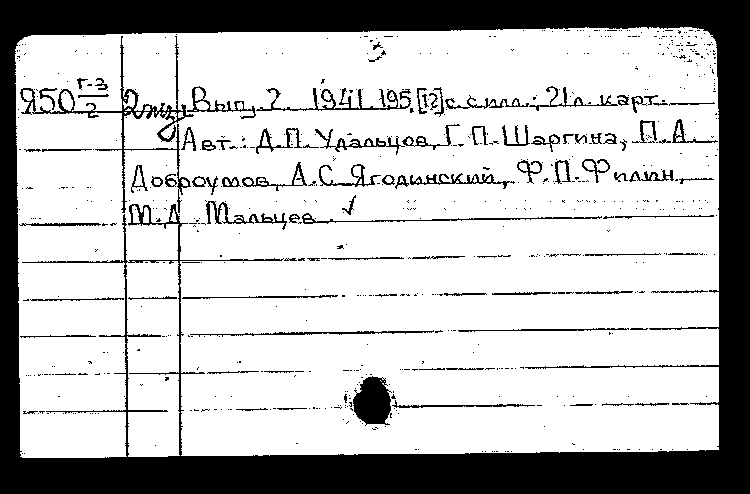 3
Я50 Г-3/2 2 экз. Вып. 2. 1941. 195, [12] с. с илл.; 21 л. карт.
Авт.: Д.П. Удальцов, Г.П. Шаргина, П.А.
Доброумов, А.С. Ягодинский, Ф.П. Филин,
М.Д. Мальцев.